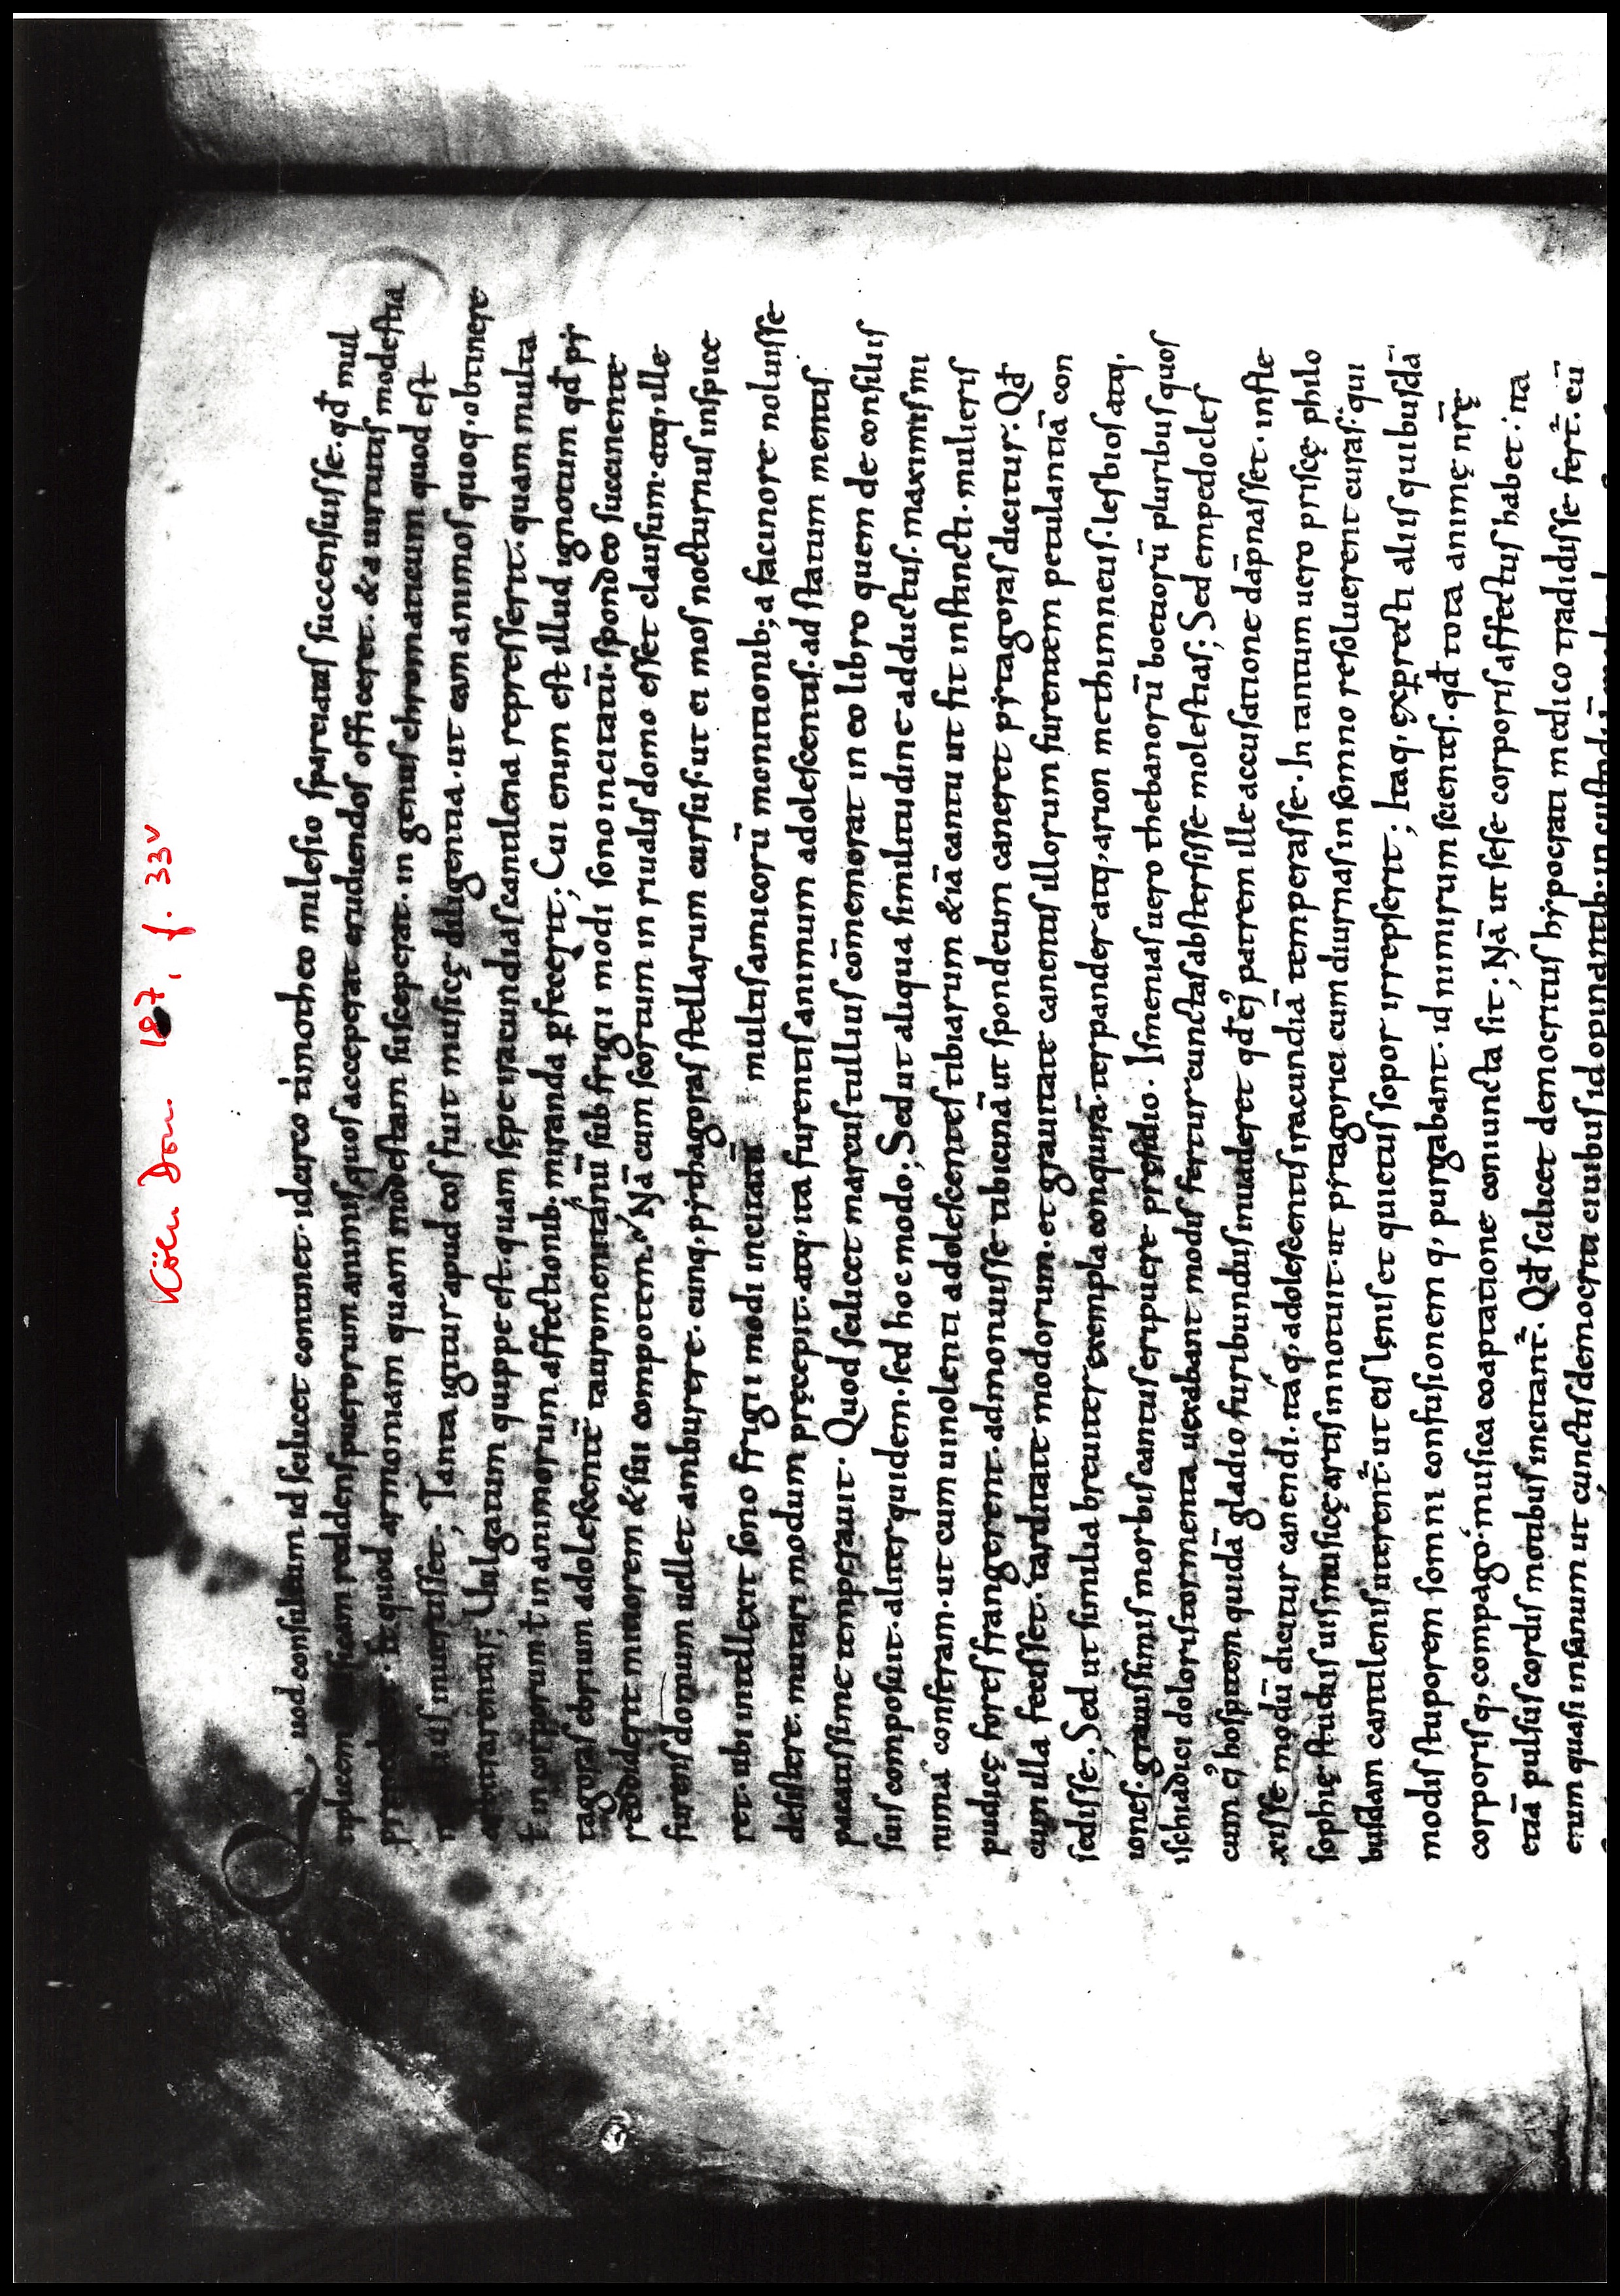 Köln Dom 187, f. 33v
Quod consultum id scilicet continet. idcirco timotheo milesio sparciatas succensuisse. qd mul
tiplicem musicam reddens puerorum animis quos acceperat erudiendos officeret. & a uirtutis modestia
et quod armoniam quam modestam susceperat. in genus chromaticum quod est
mollius inuertisset. Tanta igitur apud eos fuit musicę diligentia. ut eam animos quoq, obtinere
arbitrarentur; Uulgatum quippe est. quam sępe iracundias cantilena represserit. quam multa
t in corporum t in animorum affectionib; miranda ꝑfecerit; Cui enim est illud ignotum qd pi
tagoras ebrium adolescentē tauromenitanū sub frigii modi sono incitatū. spondeo succinente
reddiderit mitiorem & sui compotem. Nā cum scortum in riualis domo esset clausum. atq, ille
furens domum uellet amburere. cunq, pithagoras stellarum cursus. ut ei mos nocturnus inspice
ret. ubi intellexit sono frigii modi incitatū multis amicorū monitionib; a facinore noluisse
desistere. mutari modum pręcepit. atq, ita furentis animum adolescentis. ad statum mentis
pacatissime temperauit. Quod scilicet marcus tullius cōmemorat in eo libro quem de consiliis
suis composuit. aliter quidem. sed hoc modo; Sed ut aliqua similitudine adductus. maximis mi
nima conferam. ut cum uinolenti adolescentes tibiarum &iā cantu ut fit instincti. mulieris
pudicę fores frangerent. admonuisse tibicinā ut spondeum caneret pitagoras dicitur. Qd
cum illa fecisset. tarditate modorum. et grauitate canentis illorum furentem petulantiā con
sedisse. Sed ut similia breuiter exempla conquirā. terpander atq, arion methimneus. lesbios atq,
iones. grauissimis morbis cantus eripuere pręsidio. Ismenias uero thebanorū boetiorū pluribus quos
ischiadici doloris tormenta uexabant modis fertur cunctas abstersisse molestias; Sed empedocles
cum ei' hospitem quidā gladio furibundus inuaderet qd ei' patrem ille accusatione dāpnasset. infle
xisse modū dicitur canendi. itáq, adolescentis iracundiā temperasse. In tantum uero priscę philo
sophię studiis uis musicę artis innotuit. ut pitagorici cum diurnas in somno resoluerent curas. qui
busdam cantilenis uterent̄. ut eis lęnis et quietus sopor irreperet; Itaq, exꝑrecti aliis quibusdā
modis stuporem somni confusionem q, purgabant. id nimirum scientes. qd tota animę nr̄ę
corporis q, compago musica coaptatione coniuncta sit; Nā ut sese corporis affectus habet. ita
etiā pulsus cordis motibus incitant̄. Qd scilicet democritus hippocrati medico tradidisse fert̄. cū
eum quasi insanum ut cunctis democriti ciuibus id opinantib. in custodiā